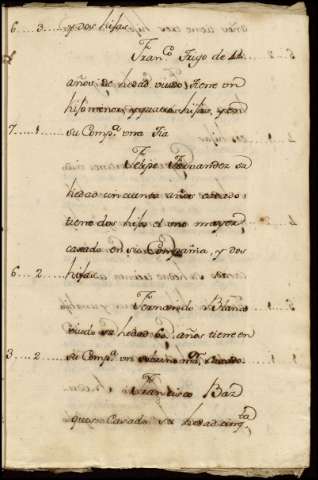 6 . . . 3 . . y dos hijas
Fran.co Trigo de
años de hedad viudo tiene un
hijo menor, y quatro hijas, y en
7 . . . 1 . . . su Comp.a vna Tia
Felipe Fernandez su
hedad cincuenta años casado,
tiene dos hijos el vno mayor
casado en su Compañia, y dos
6 . . . 2 . . . hijas
Fernando Blanco
viudo su hedad 60 años tiene en
3 . . . 2 . . . su Comp.a un
Francisco Baz
quez Casado su hedad cinq.ta